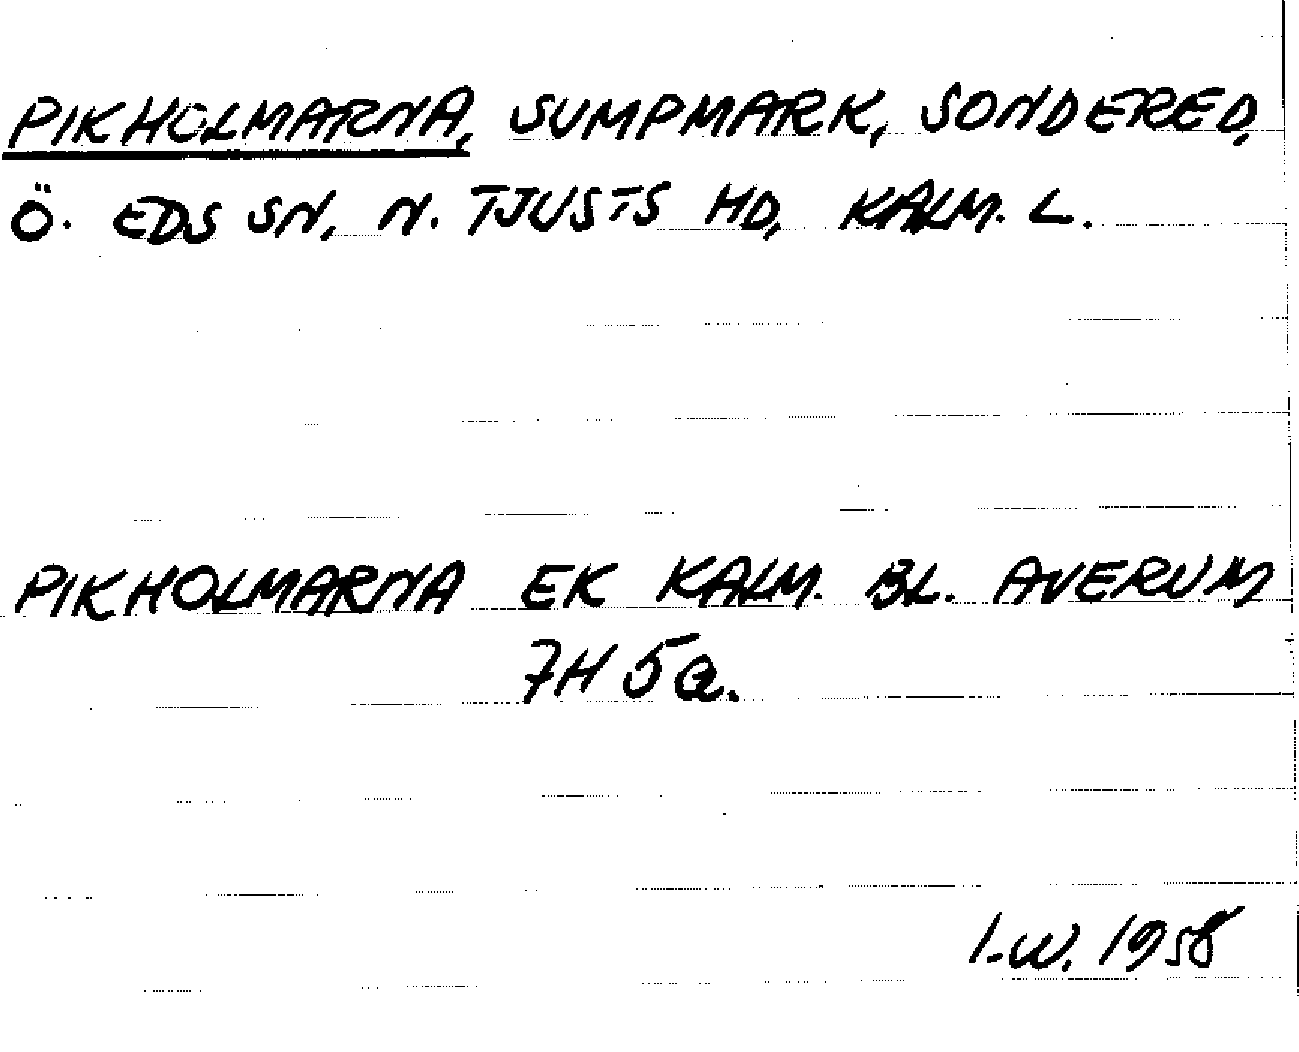 PIKHOLMARNA, SUMPMARK, SONDERED,
Ö. EDS SN, N. TJUSTS HD, KALM. L.
PIKHOLMARNA EK KALM. BL. AVERUM
7H 5a.
I.W. 1958